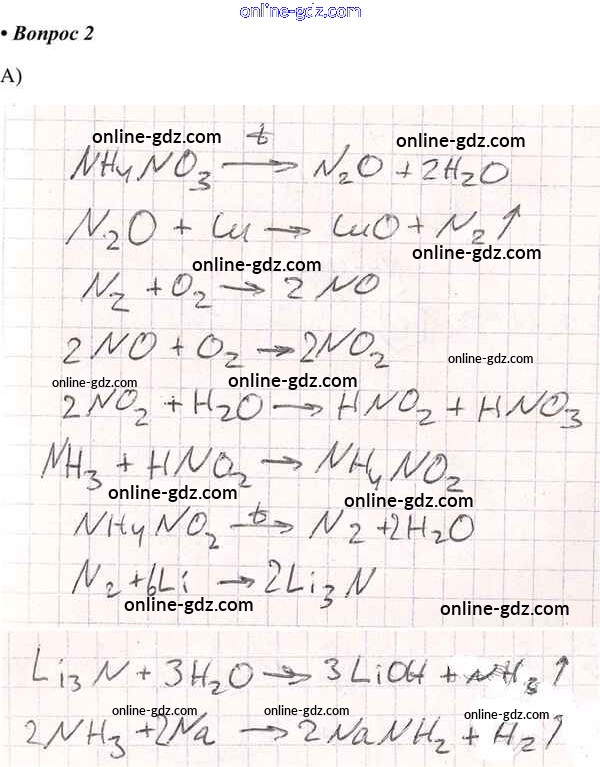 online-gdz.com
• Вопрос 2
А)
online-gdz.com online-gdz.com
NH₄NO₃ →ᵗ N₂O + 2H₂O
N₂O + Cu → CuO + N₂↑
online-gdz.com online-gdz.com
N₂ + O₂ → 2NO
2NO + O₂ → 2NO₂
online-gdz.com
online-gdz.com online-gdz.com
2NO₂ + H₂O → HNO₂ + HNO₃
NH₃ + HNO₂ → NH₄NO₂
online-gdz.com online-gdz.com
NH₄NO₂ →ᵗ N₂ + 2H₂O
N₂ + 6Li → 2Li₃N
online-gdz.com online-gdz.com
Li₃N + 3H₂O → 3LiOH + NH₃↑
online-gdz.com online-gdz.com online-gdz.com
2NH₃ + 2Na → 2NaNH₂ + H₂↑